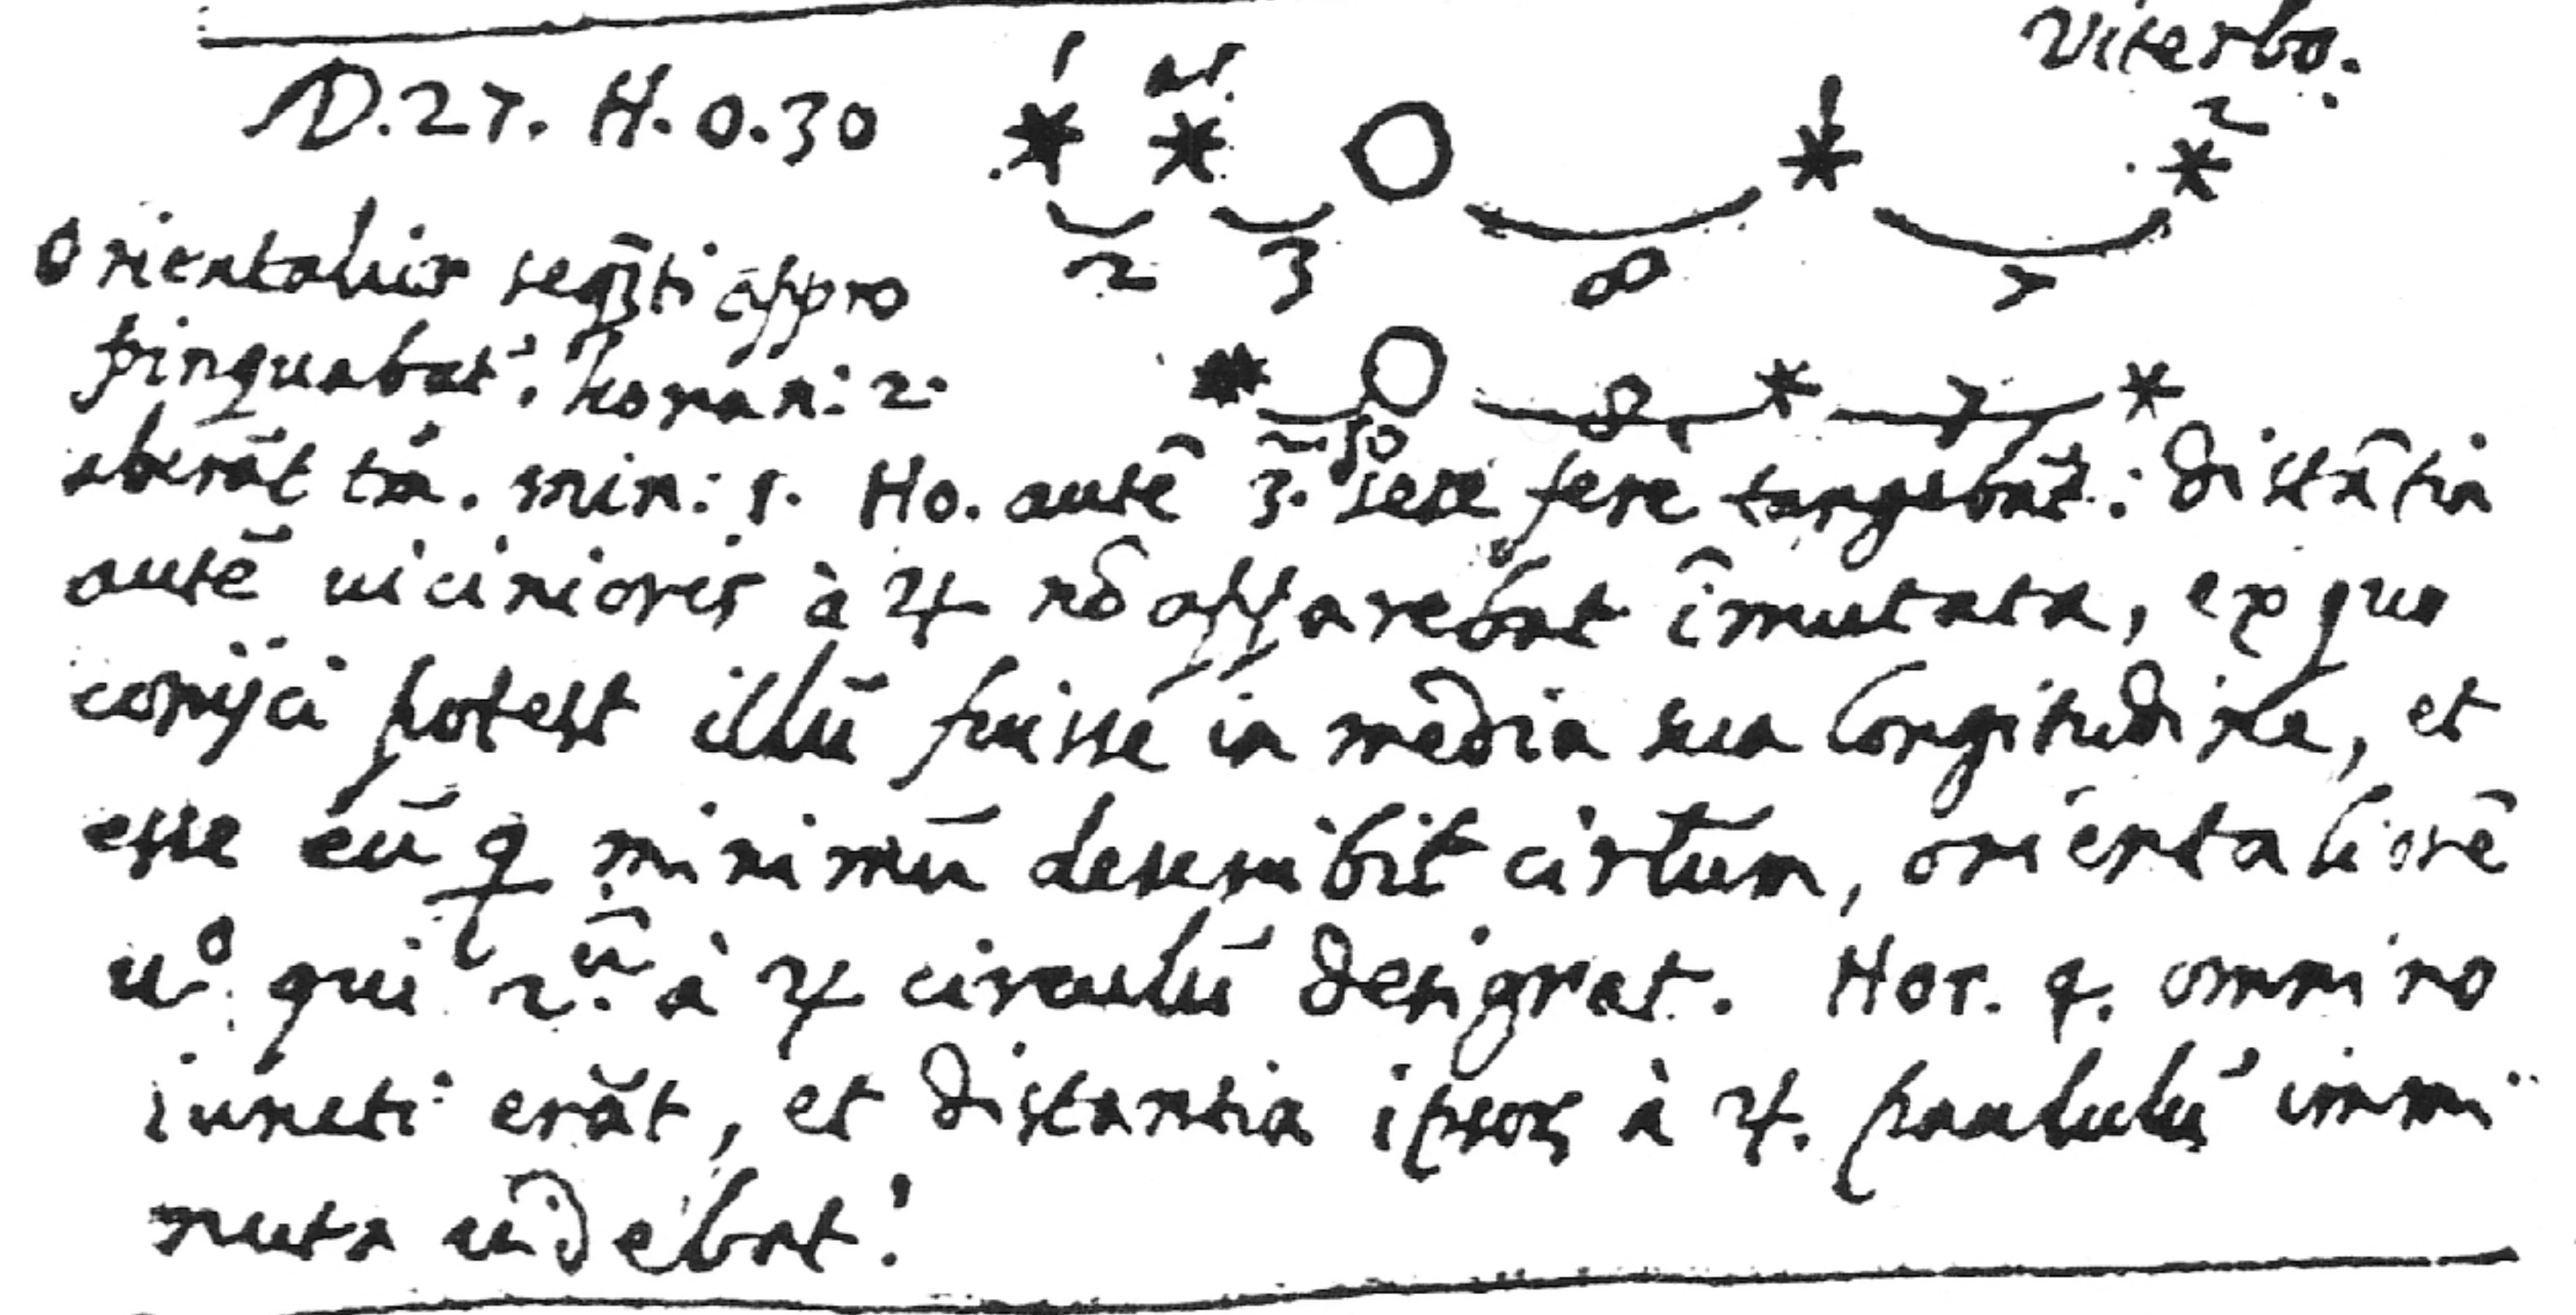 Viterbo.
D. 27. H. 0. 30
1 al. 1 2
2 3 8 7
Orientalior seqũti appro
pinquabat: hora n: 2.
8 7
aberãt tñ. min: 1. Ho. autẽ 3. sese fere tangebãt: distãtia
autẽ uicinioris à ♃ nõ apparebat ĩmutata, ex quo
conijci potest illũ fuisse in media sua longitudine, et
esse eũ q minimũ describit cirlum, orientaliorẽ
uº qui 2.ũ à ♃ circulũ designat. Hor. 4. omnino
iuncti erãt, et distantia ipsoꝝ à ♃. paululũ immi
nuta uidebat: